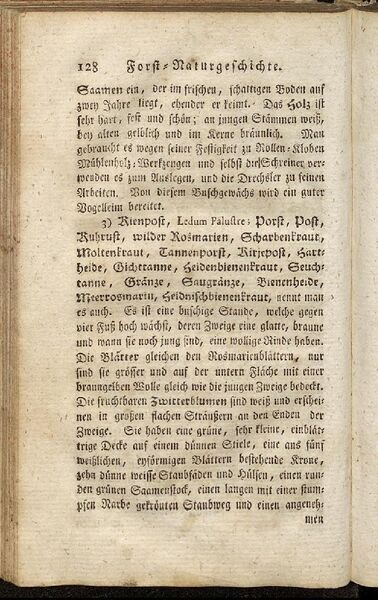 128 Forst-Naturgeschichte.
Saamen ein, der im frischen, schattigen Boden auf
zwey Jahre liegt, ehender er keimt. Das Holz ist
sehr hart, fest und schön; an jungen Stämmen weiß,
bey alten gelblich und im Kerne bräunlich. Man
gebraucht es wegen seiner Festigkeit zu Rollen-Kloben
Mühlenholz-Werkzeugen und selbst die Schreiner ver-
wenden es zum Auslegen, und die Drechsler zu seinen
Arbeiten. Von diesem Buschgewächs wird ein guter
Vogelleim bereitet.
3) Kienpost, Ledum Palustre; Porst, Post,
Kuhrust, wilder Rosmarien, Scharbenkraut,
Moltenkraut, Tannenporst, Kirjepost, Hart-
heide, Gichttanne, Heidenbienenkraut, Seuch-
tanne, Gränze, Saugränze, Bienenheide,
Meerrosmarin, Heidnischbienenkraut, nennt man
es auch. Es ist eine buschige Staude, welche gegen
vier Fuß hoch wächst, deren Zweige eine glatte, braune
und wann sie noch jung sind, eine wollige Rinde haben.
Die Blätter gleichen den Rosmarienblättern, nur
sind sie grösser und auf der untern Fläche mit einer
braungelben Wolle gleich wie die jungen Zweige bedeckt.
Die fruchtbaren Zwitterblumen sind weiß und erschei-
nen in großen flachen Sträußern an den Enden der
Zweige. Sie haben eine grüne, sehr kleine, einblät-
trige Decke auf einem dünnen Stiele, eine aus fünf
weißlichen, eyförmigen Blättern bestehende Krone,
zehn dünne weisse Staubfäden und Hülsen, einen run-
den grünen Saamenstock, einen langen mit einer stum-
pfen Narbe gekrönten Staubweg und einen angeneh-
men